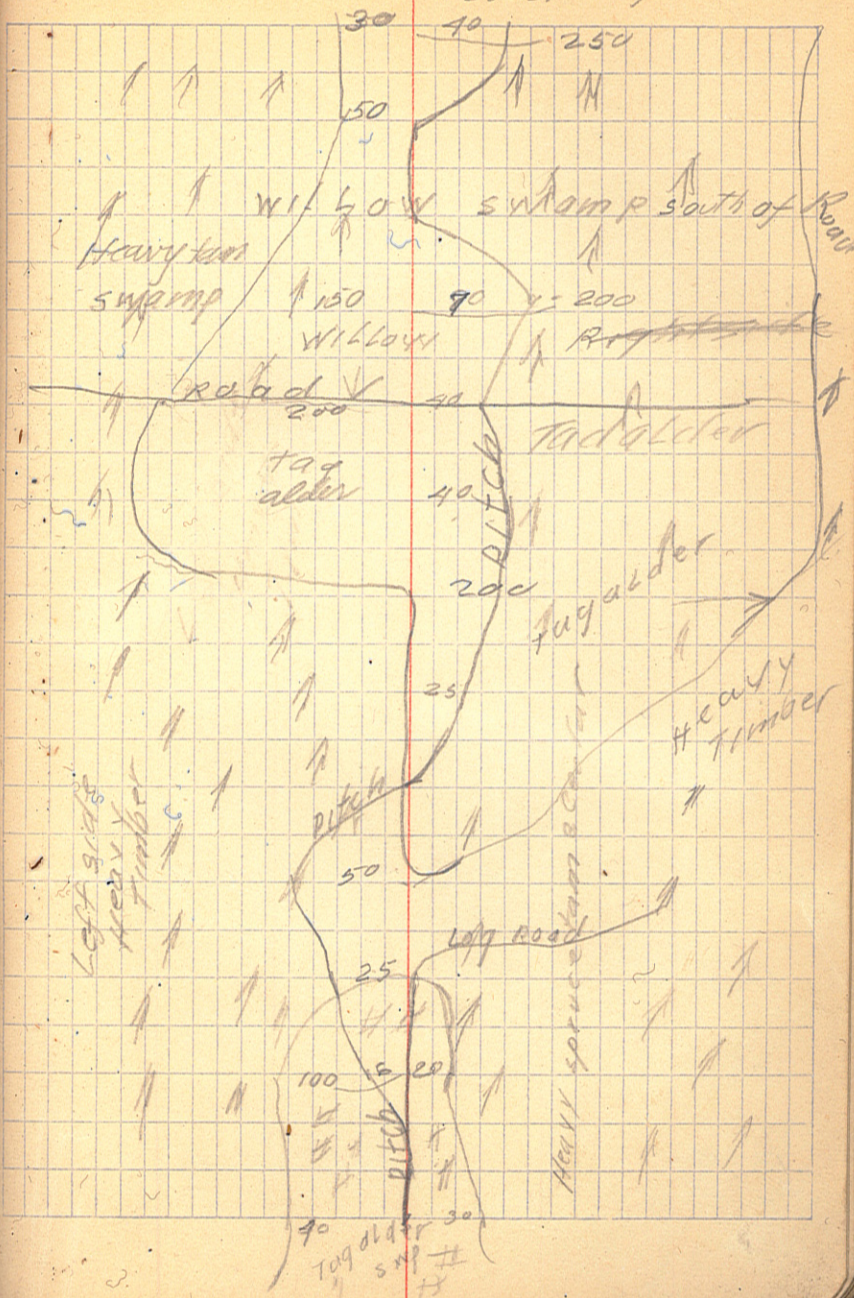 30 40
250
50
Willow swamp south of Road
Heavy tam
swamp
150 90 200
Willow Rightside
Road
200 40
Tadalder
tag
alder
40
Ditch
200
Tugalder
25
Heavy
Timber
Ditch
Left side
Heavy
Timber
50
Log Road
25
Heavy spruce tam & cedar
100 15 20
Ditch
40 30
Tugalder
smp